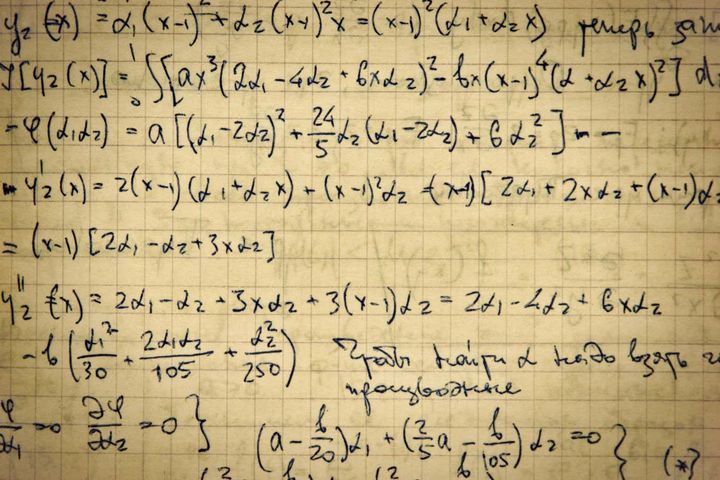 y₂(x) = α₁(x-1)² + α₂(x-1)²x = (x-1)²(α₁+α₂x) теперь
J[y₂(x)] = ₀∫¹[ax³(2α₁-4α₂+6xα₂)²-bx(x-1)⁴(α+α₂x)²]
= φ(α₁α₂) = a[(α₁-2α₂)²+24/5 α₂(α₁-2α₂)+6α₂²] - -
y₂'(x) = 2(x-1)(α₁+α₂x)+(x-1)²α₂ = (x-1)[2α₁+2xα₂+(x-1)α₂
= (x-1)[2α₁-α₂+3xα₂]
y₂''(x) = 2α₁-α₂+3xα₂+3(x-1)α₂ = 2α₁-4α₂+6xα₂
-b(α₁²/30 + 2α₁α₂/105 + α₂²/250) Чтобы найти α надо взять
производные
=0 ∂φ/∂α₂ =0} (a-b/20)α₁+(2/5a-b/105)α₂=0} (*)